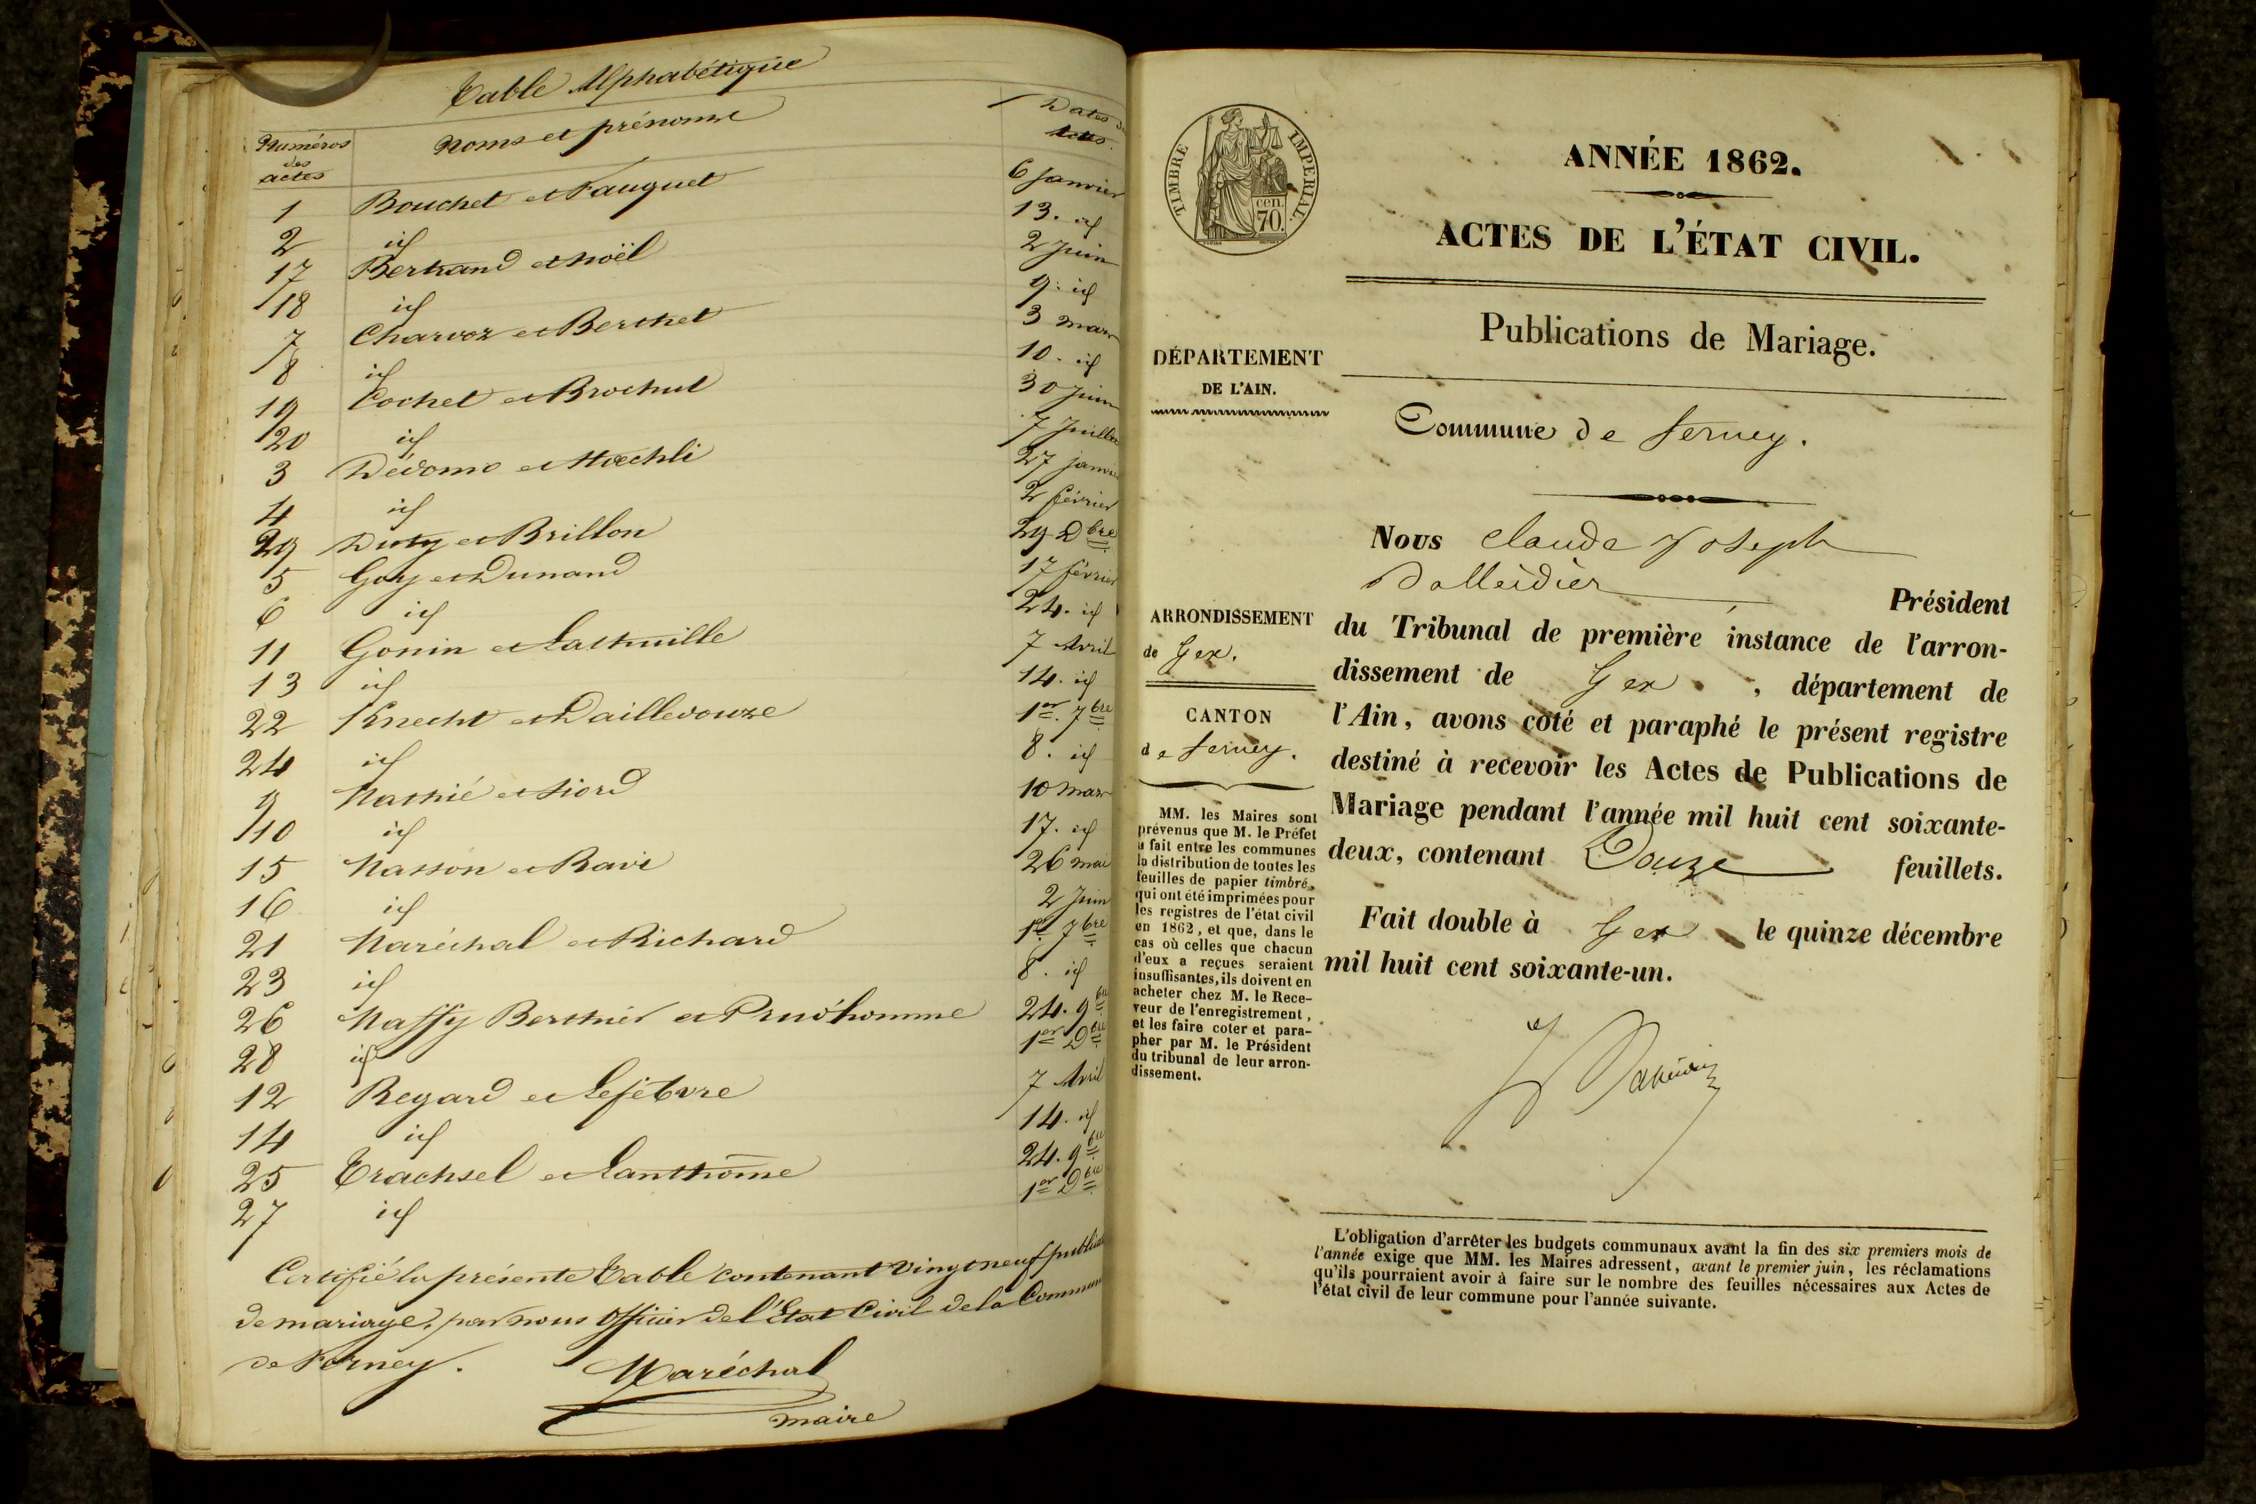 Table Alphabétique
Numéros des actes Noms et prénoms Dates des actes.
1 Bouchet et Fauquet 6 Janvier
2 id 13. id
17 Bertrand et Noël 2 Juin
18 id 9. id
7 Charvoz et Berthet 3 Mars
8 id 10. id
19 Cochet et Brochut 30 Juin
20 id 7 Juillet
3 Dévomo et Moechli 27 janvier
4 id 2 Février
29 Duty et Brillon 29 Dbre
5 Goy et Dunand 17 février
6 id 24. id
11 Gonin et 7 Avril
13 id 14. id
22 Knecht et Daillevouze 1er 7bre
24 id 8. id
9 Mathié et Siord 10 Mars
10 id 17. id
15 Masson et Ravi 26 mai
16 id 2 Juin
21 Maréchal et Richard 1er 7bre
23 id 8. id
26 Maffy Berthier et Prud'homme 24. 9bre
28 id 1er Dbre
12 Regard et Lefébvre 7 Avril
14 id 14. id
25 Trachsel et Lanthôme 24. 9bre
27 id 1er Dbre
Certifié la présente Table contenant vingt neuf
de mariage, par nous Officier de l'État Civil de la Commune
de Ferney.
Maréchal
maire
TIMBRE IMPERIAL.
cen. 70.
ANNÉE 1862.
ACTES DE L'ÉTAT CIVIL.
Publications de Mariage.
DÉPARTEMENT
DE L'AIN.
Commune de Ferney.
ARRONDISSEMENT
de Gex.
CANTON
de Ferney.
MM. les Maires sont
prévenus que M. le Préfet
a fait entre les communes
la distribution de toutes les
feuilles de papier timbré,
qui ont été imprimées pour
les registres de l'état civil
en 1862, et que, dans le
cas où celles que chacun
d'eux a reçues seraient
insuffisantes, ils doivent en
acheter chez M. le Rece-
veur de l'enregistrement,
et les faire coter et para-
pher par M. le Président
du tribunal de leur arron-
dissement.
Nous Claude Joseph
Président
du Tribunal de première instance de l'arron-
dissement de Gex, département de
l'Ain, avons coté et paraphé le présent registre
destiné à recevoir les Actes de Publications de
Mariage pendant l'année mil huit cent soixante-
deux, contenant Douze feuillets.
Fait double à Gex le quinze décembre
mil huit cent soixante-un.
L'obligation d'arrêter les budgets communaux avant la fin des six premiers mois de
l'année exige que MM. les Maires adressent, avant le premier juin, les réclamations
qu'ils pourraient avoir à faire sur le nombre des feuilles nécessaires aux Actes de
l'état civil de leur commune pour l'année suivante.